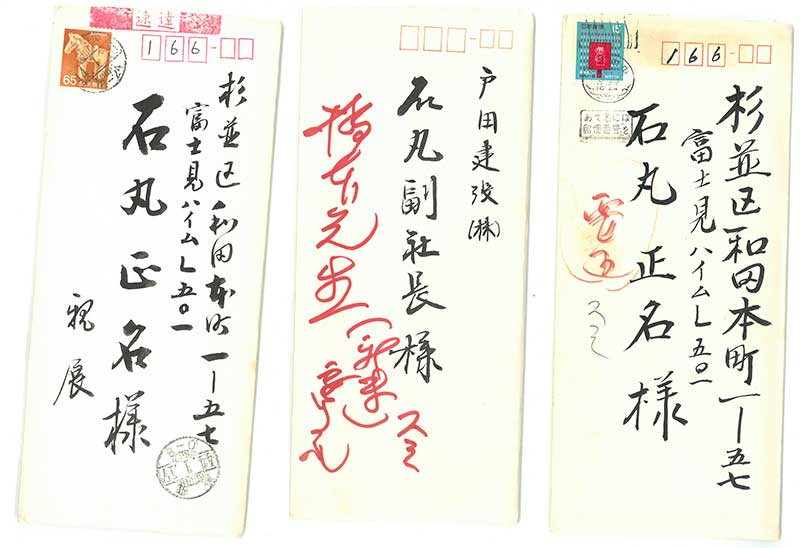 速達
65
166
杉並区和田本町一ー五七
富士見ハイムL五〇一
石丸正名様
親展
戸田建設(株)
石丸副社長様
橋本先生
スミ
15
166
あて名には
郵便番号を
杉並区和田本町一ー五七
富士見ハイムL五〇一
石丸正名様
スミ